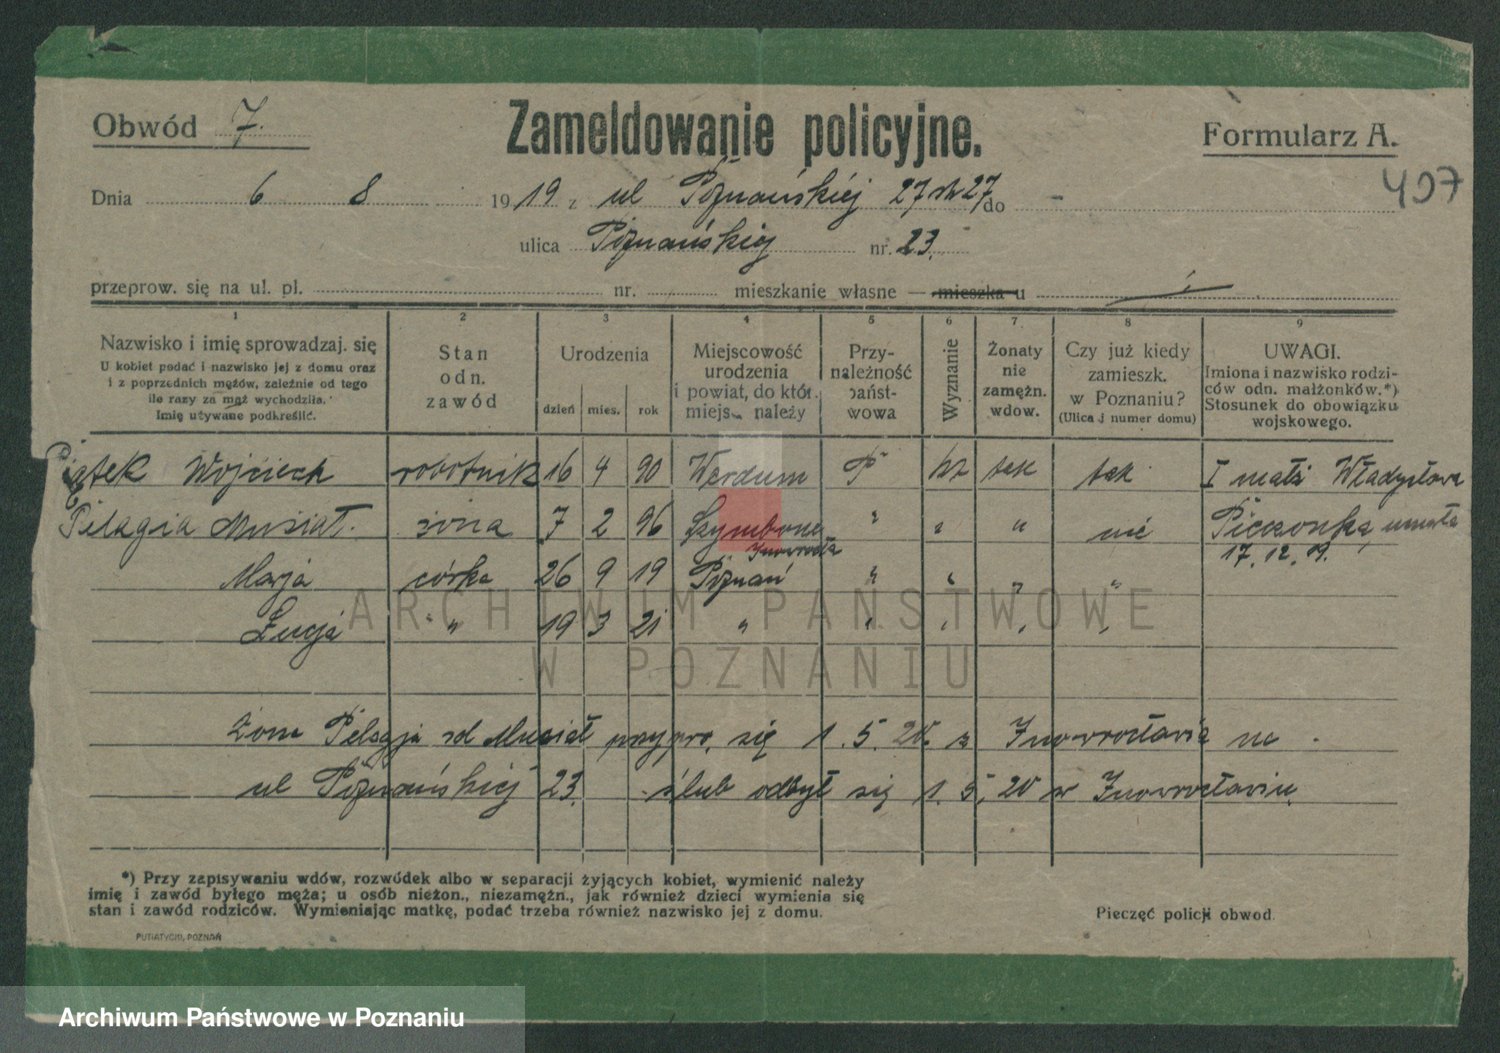 Obwód 7.
Zameldowanie policyjne.
Formularz A.
407
Dnia 6 8 1919 z ul Poznańskiej 27 27 do -
ulica Poznańskiej nr. 23.
przeprow. się na ul. pl. nr. mieszkanie własne — mieszka u
1 2 3 4 5 6 7 8 9
Nazwisko i imię sprowadzaj. się
U kobiet podać i nazwisko jej z domu oraz
i z poprzednich mężów, zależnie od tego
ile razy za mąż wychodziła.
Imię używane podkreślić.
Stan
odn.
zawód
Urodzenia
dzień mies. rok
Miejscowość
urodzenia
i powiat, do któr.
miejs. należy
Przy-
należność
państ-
wowa
Wyznanie
Żonaty
nie
zamężn.
wdow.
Czy już kiedy
zamieszk.
w Poznaniu?
(Ulica i numer domu)
UWAGI.
Imiona i nazwisko rodzi-
ców odn. małżonków.*)
Stosunek do obowiązku
wojskowego.
Piątek Wojciech robotnik 16 4 90 Werdum P kt tak tak I małż Władysława
Pelagia Musiał. żona 7 2 96 Szymborze " " " nie Pieczonka, umarła
Inowrocła 17.12.19.
Marja córka 26 9 19 Poznań " " " "
Łucja " " 19 3 21 " " " " "
Żona Pelagja zd Musiał przypro. się 1. 5. 20. z Inowrocławia na
ul Poznańskiej 23. ślub odbył się 1. 5. 20 w Inowrocławiu.
*) Przy zapisywaniu wdów, rozwódek albo w separacji żyjących kobiet, wymienić należy
imię i zawód byłego męża; u osób nieżon., niezamężn., jak również dzieci wymienia się
stan i zawód rodziców. Wymieniając matkę, podać trzeba również nazwisko jej z domu.
Pieczęć policji obwod.
PUTIATYCKI, POZNAŃ
ARCHIWUM PAŃSTWOWE
W POZNANIU
Archiwum Państwowe w Poznaniu